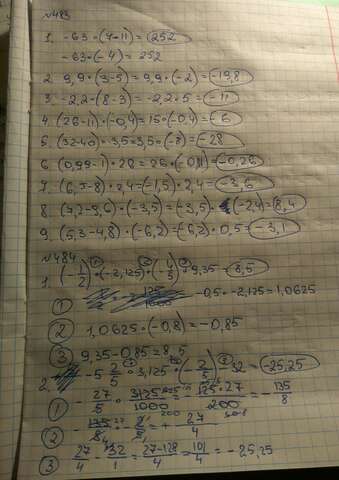 №483
1. -63·(7-11)=252
-63·(-4)=252
2. 9,9·(3-5)=9,9·(-2)=-19,8
3. -2,2·(8-3)=-2,2·5=-11
4. (26-11)·(-0,4)=15·(-0,4)=-6
5. (32-40)·3,5=3,5·(-8)=-28
6. (0,99-1)·26=26·(-0,01)=-0,26
7. (6,5-8)·2,4=(-1,5)·2,4=-3,6
8. (7,2-9,6)·(-3,5)=(-3,5)·(-2,4)=8,4
9. (5,3-4,8)·(-6,2)=(-6,2)·0,5=-3,1
№484
1. (-1/2)·(-2,125)·(-4/5)+9,35=8,5
① -0,5·-2,125=1,0625
② 1,0625·(-0,8)=-0,85
③ 9,35-0,85=8,5
2. -5 2/5·3,125·(-2/5)-32=-25,25
① -27/5·3125/1000=-125·27/200=-135/8
② =+27/4
③ 27/4-32/1=27-128/4=101/4=-25,25